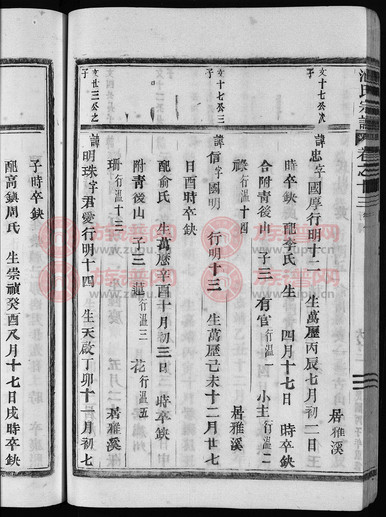 氏宗譜 卷之十三
文十七公次子
諱忠字國學行明十二 生萬歷丙辰七月初二日
時卒缺 配李氏 生 四月十七日 時卒缺
合附青後山 子三 有官行溫一 小主行溫二
祿行溫十四 居雅溪
文十七公三子
諱信字國明 行明十三 生萬歷己未十二月廿七
日酉時卒缺 居雅溪
配俞氏 生萬歷辛酉十月初三日 時卒缺
附青後山 子三 蓮行溫三 花行溫五
珊行溫十三 居雅溪
文世三公之子
諱明珠字君愛行明十四 生天啟丁卯十一月初七
子時卒缺
配高鎮周氏 生崇禎癸酉 月十七日戌時卒缺